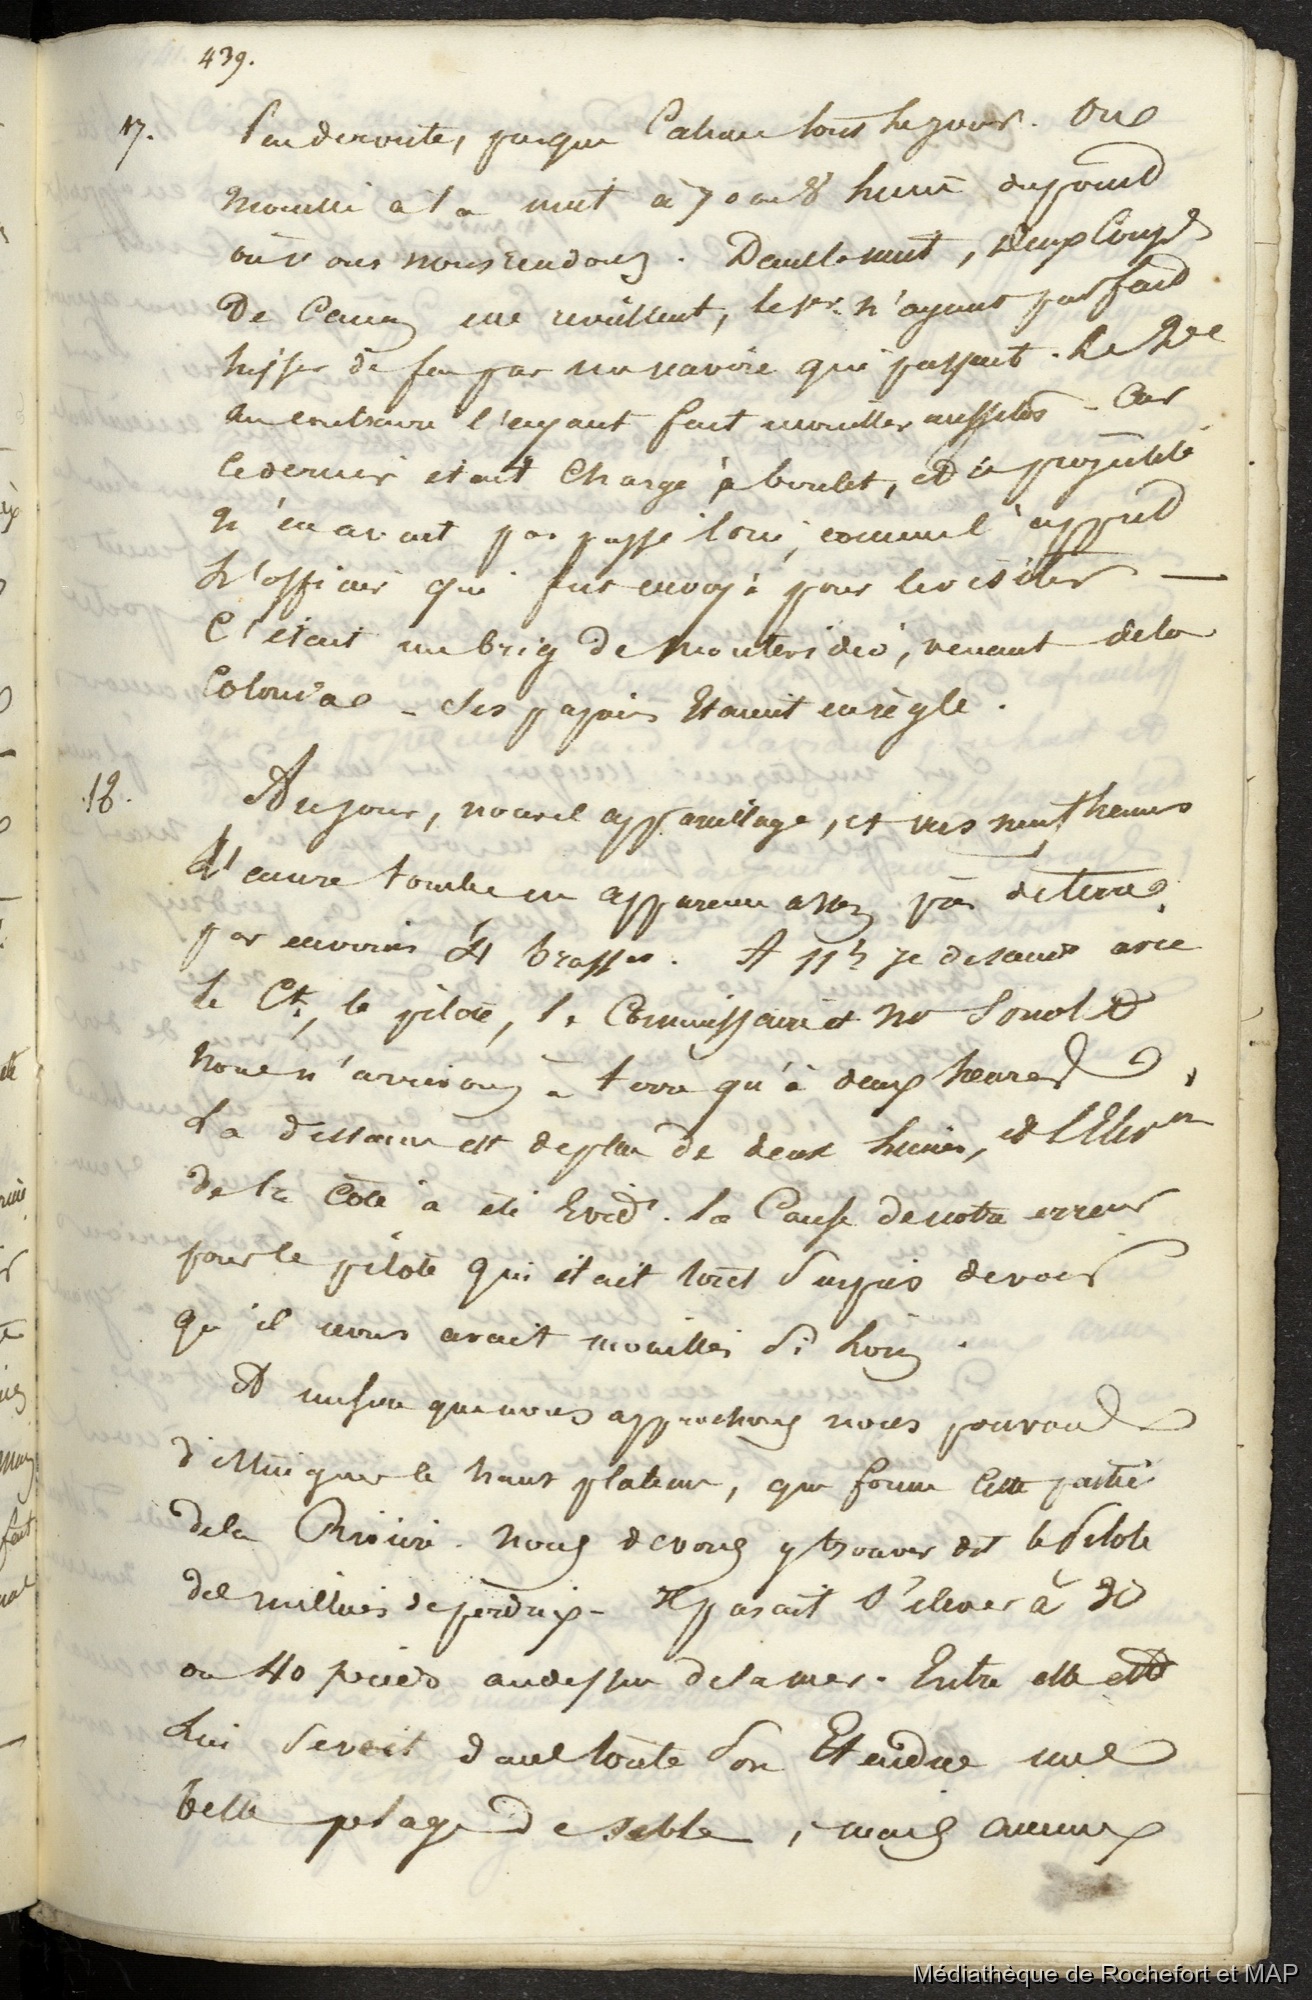 439.
17. Peu de route, presque calme tout le jour. On
mouille à la nuit à 7 ou 8 heures du
où nous nous rendons. Dans la nuit, deux coups
De canon me réveillent, le 1er. n'ayant pas fait
hisser de feu par un navire qui passait. Le 2e
au contraire l'ayant fait mouiller aussitôt - Car
ce dernier était chargé à boulet, et le projectile
n'en avait pas passé loin, comme l'apprit
L'officier qui fut envoyé pour le visiter —
C'était un brig de Montevideo, venant de la
Colonia - Ses papiers Etaient en règle.
18. Au jour, nouvel appareillage, et vers neuf heures
L'ancre tombe en apparence assez près de terre
par environ 4 brasses. A 11h je descends avec
le Ct., le pilote, le Commissaire et Mr
Nous n'arrivons à terre qu'à deux heures,
La distance est de plus de deux lieues, et l'Elévon
de la Côte a été Evidt. la Cause de notre erreur
pour le pilote qui était tout surpris de voir
qu'il nous avait mouillés si loin.
A mesure que nous approchons nous pouvons
distinguer le haut plateau, que forme cette partie
de la Rivière. Nous devons y trouver dit le Pilote
des milliers de perdrix - Il parait s'élever à 30
ou 40 pieds au dessus de la mer. Entre elle et
Lui serait dans toute son Etendue une
belle plage de sable, mais aucuns
Médiathèque de Rochefort et MAP